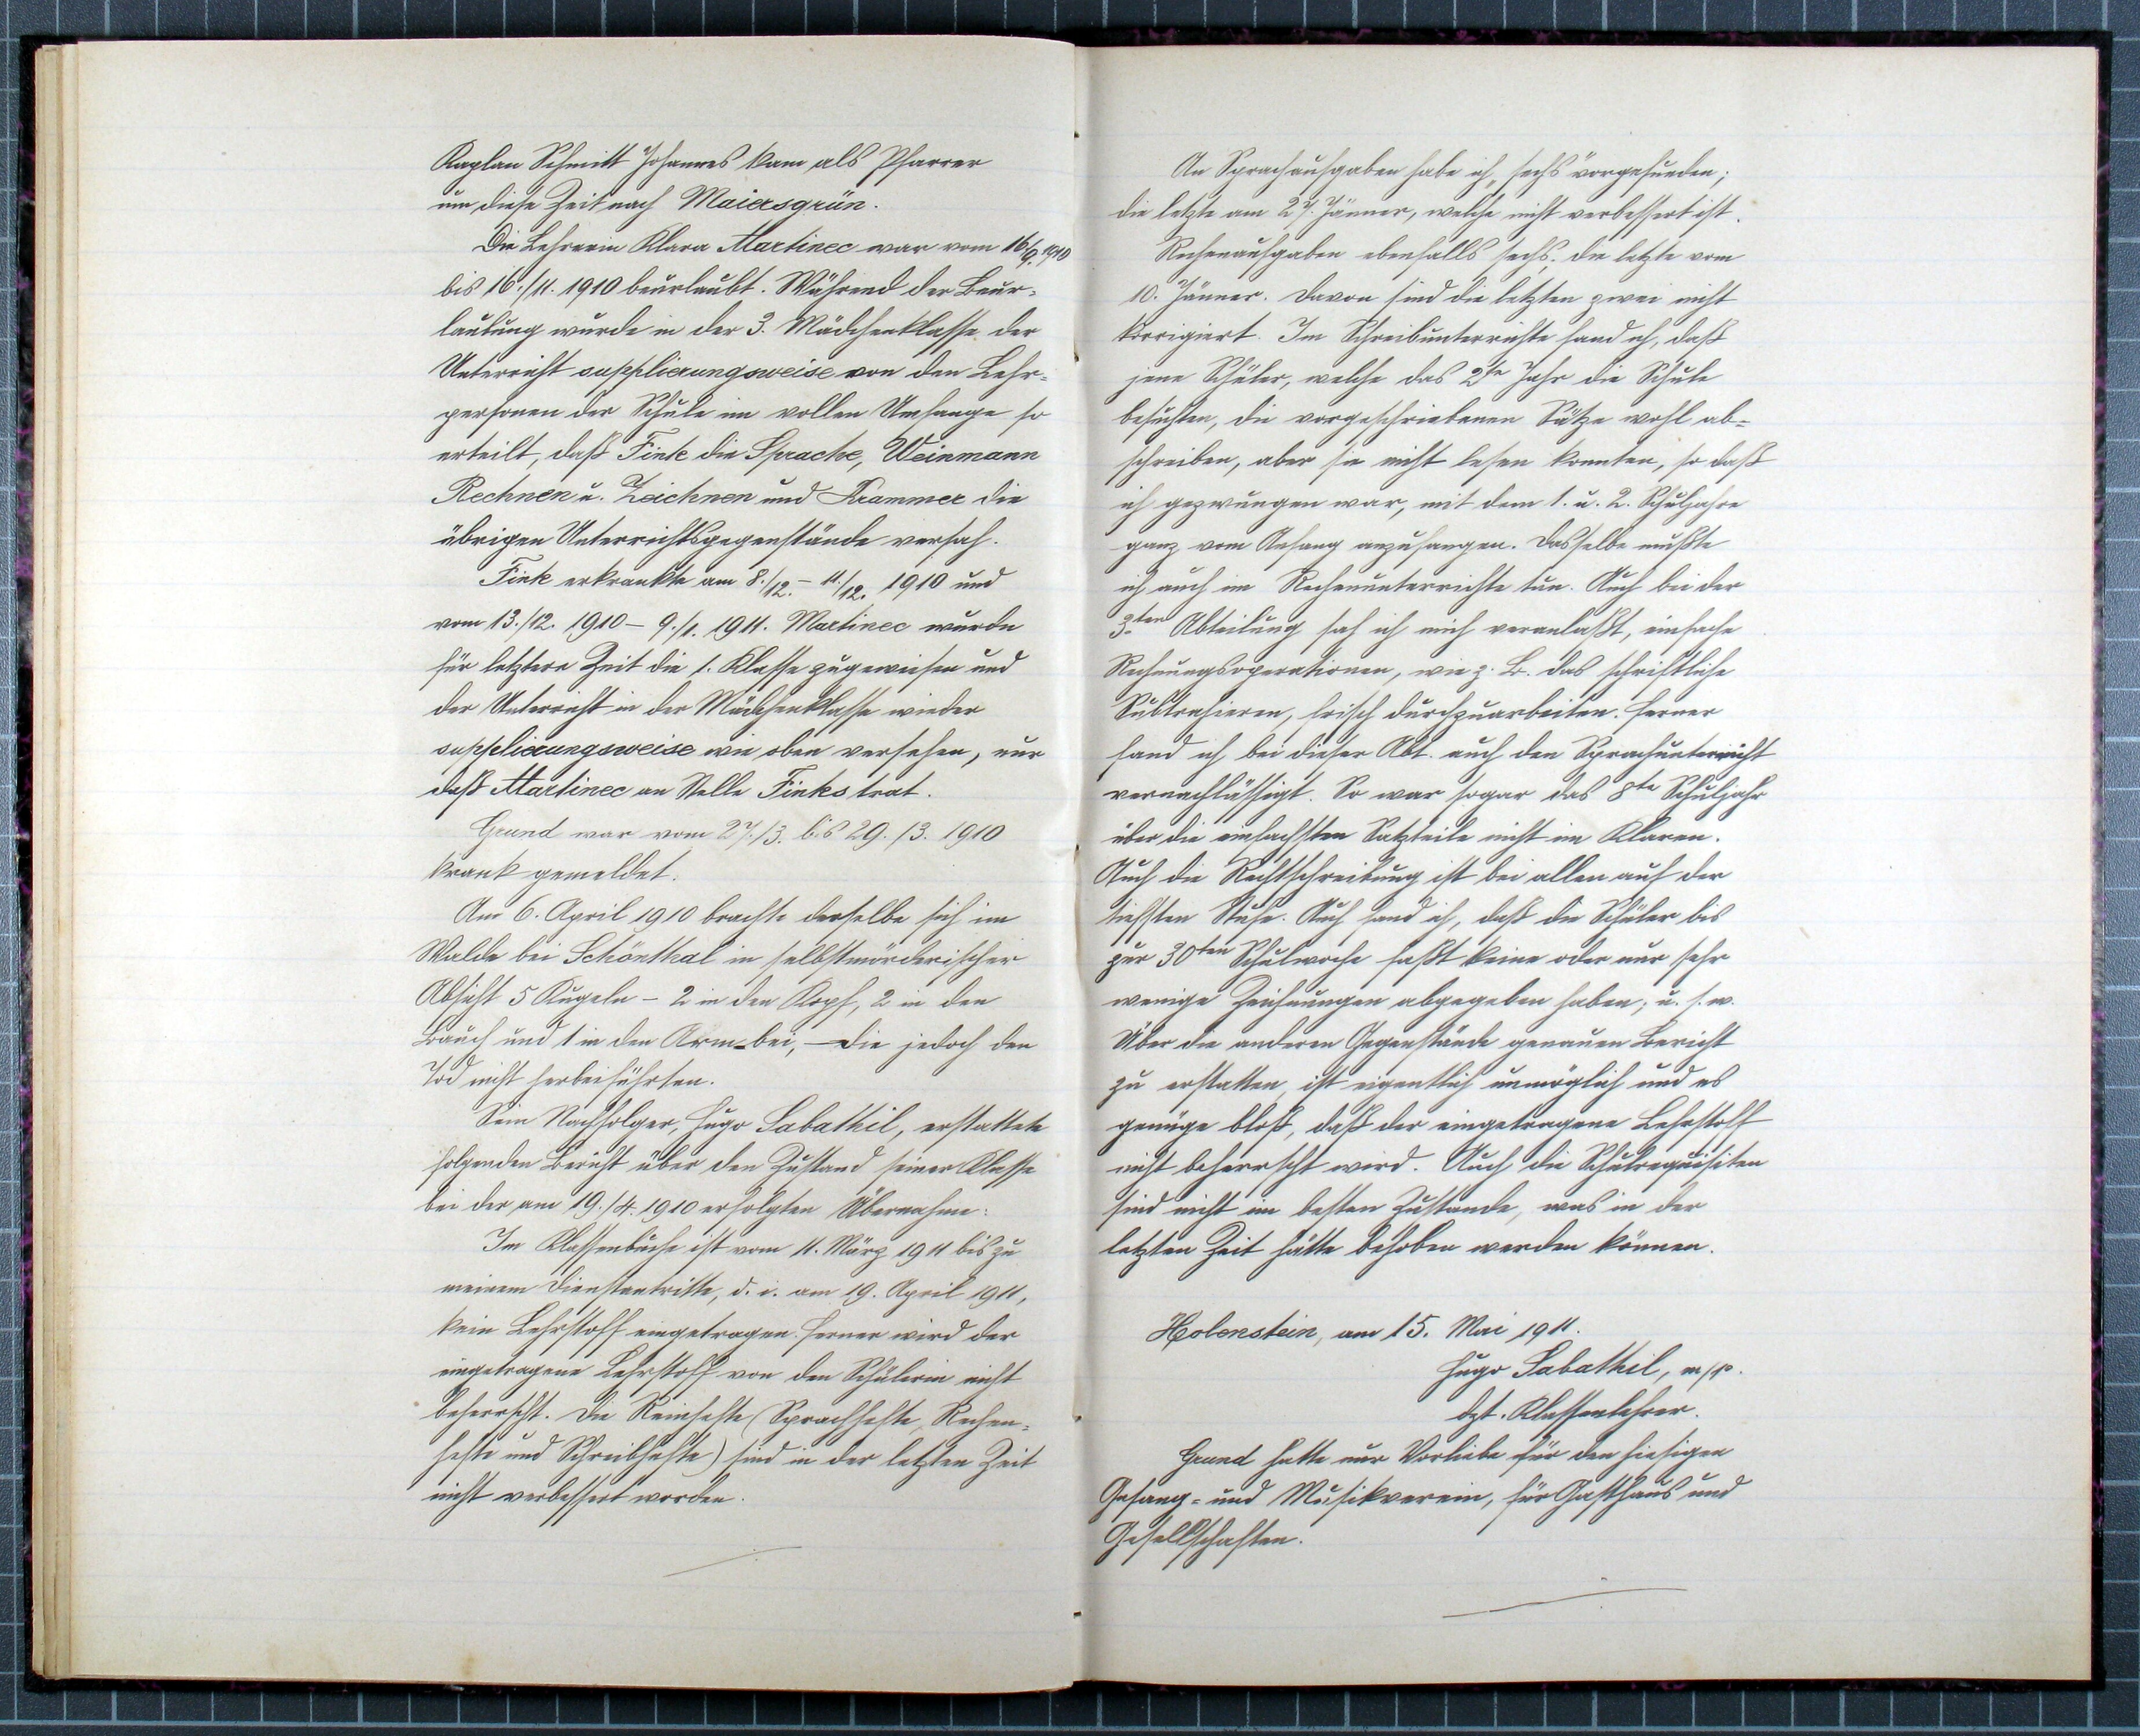 Kaplan Schmitt Johannes kam als Pfarrer
um diese Zeit nach Maiersgrün.
Die Lehrerin Klara Martinec war vom 16./9. 1910
bis 16./11. 1910 beurlaubt. Während der Beur-
laubung wurde in der 3. Mädchenklasse der
Unterricht supplierungsweise von den Lehr-
personen der Schule im vollen Umfange so
erteilt, daß Fink die Sprache, Weinmann
Rechnen u. Zeichnen und Krammer die
übrigen Unterrichtsgegenstände versah.
Fink erkrankte am 8./12. - 11./12. 1910 und
vom 13./12. 1910 - 9./1. 1911. Martinec wurde
für letztere Zeit die 1. Klasse zugewiesen und
der Unterricht in der Mädchenklasse wieder
supplierungsweise wie oben versehen, nur
daß Martinec an Stelle Finks trat.
Grund war vom 27./3. bis 29./3. 1910
krank gemeldet.
Am 6. April 1910 brachte derselbe sich im
Walde bei Schönthal in selbstmörderischer
Absicht 5 Kugeln - 2 in den Kopf, 2 in den
Bauch und 1 in den Arm bei, - die jedoch den
Tod nicht herbeiführten.
Sein Nachfolger, Hugo Sabathil, erstattete
folgenden Bericht über den Zustand seiner Klasse
bei der am 19./4. 1910 erfolgten Übernahme:
Im Klassenbuche ist vom 11. März 1911 bis zu
meinem Dienstantritte, d. i. am 19. April 1911,
kein Lehrstoff eingetragen. Ferner wird der
eingetragene Lehrstoff von den Schülern nicht
beherrscht. Die Reinhefte (Sprachhefte, Rechen-
hefte und Schreibhefte) sind in der letzten Zeit
nicht verbessert worden.
An Sprachaufgaben habe ich "sechs" vorgefunden;
die letzte am 27. Jänner, welche nicht verbessert ist.
Rechenaufgaben ebenfalls sechs; die letzte vom
10. Jänner. Davon sind die letzten zwei nicht
korrigiert. Im Schreibunterrichte fand ich, daß
jene Schüler, welche das 2te Jahr die Schule
besuchten, die vorgeschriebenen Sätze wohl ab-
schreiben, aber sie nicht lesen konnten, so daß
ich gezwungen war, mit dem 1. u. 2. Schuljahre
ganz vom Anfang anzufangen. Dasselbe mußte
ich auch im Rechenunterrichte tun. Auch bei der
3ten Abteilung sah ich mich veranlaßt, einfache
Rechnungsoperationen, wie z. B. das schriftliche
Subtrahieren, frisch durchzuarbeiten. Ferner
fand ich bei dieser Abt. auch den Sprachunterricht
vernachlässigt. So war sogar das 8te Schuljahr
über die einfachsten Satzteile nicht im Klaren.
Auch die Rechtschreibung ist bei allen auf der
tiefsten Stufe. Auch fand ich, daß die Schüler bis
zur 30ten Schulwoche fast keine oder nur sehr
wenige Zeichnungen abgegeben haben; u. s. w.
Über die anderen Gegenstände genauen Bericht
zu erstatten, ist eigentlich unmöglich und es
genüge bloß, daß der eingetragene Lehrstoff
nicht beherrscht wird. Auch die Schulrequisiten
sind nicht im besten Zustande, was in der
letzten Zeit hätte behoben werden können.
Holenstein, am 15. Mai 1911.
Hugo Sabathil, m/p.
dzt. Klassenlehrer.
Grund hatte nur Vorliebe für den hiesigen
Gesang- und Musikverein, für Gasthaus und
Gesellschaften.